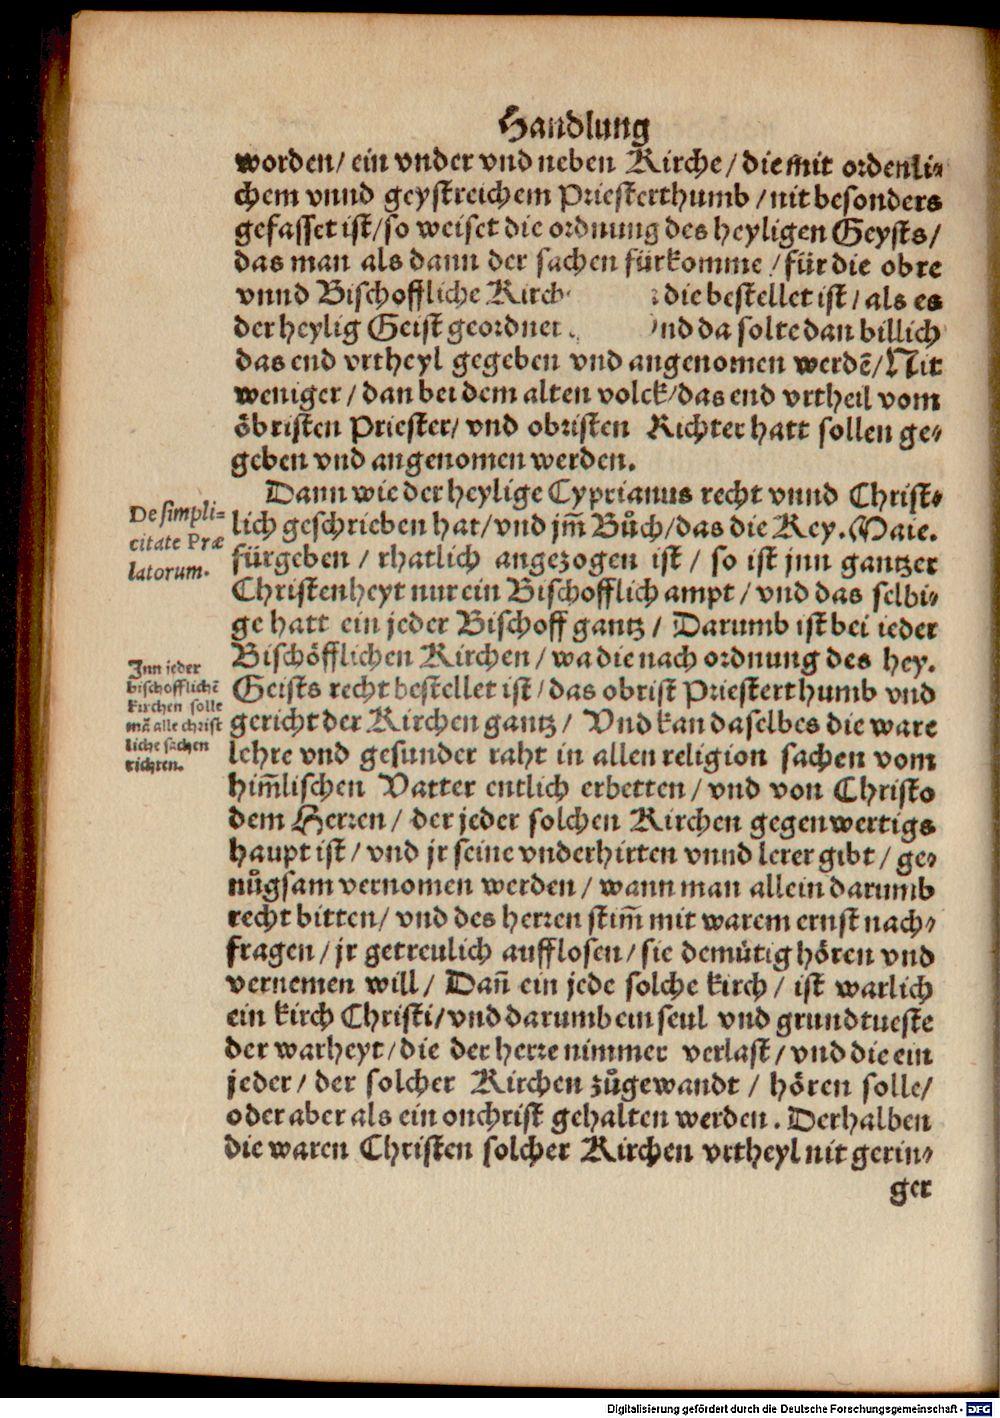 Handlung
worden/ ein vnder vnd neben Kirche/ die mit ordenli⸗
chem vnnd geystreichem Priesterthumb/ nit besonders
gefasset ist/ so weiset die ordnung des heyligen Geysts/
das man als dann der sachen fürkomme/ für die obre
vnnd Bischoffliche die bestellet ist/ als es
der heylig Geist geordnet da solte dan billich
das end vrtheyl gegeben vnd angenomen werdẽ/ Nit
weniger/ dan bei dem alten volck/ das end vrtheil vom
öbristen Priester/ vnd obristen Richter hatt sollen ge⸗
geben vnd angenomen werden.
Dann wie der heylige Cyprianus recht vnnd Christ⸗
De simpli-
citate Præ
latorum.
lich geschrieben hat/ vnd jm̃ Bůch/ das die Key. Maie.
fürgeben/ rhatlich angezogen ist/ so ist jnn gantzer
Christenheyt nur ein Bischofflich ampt/ vnd das selbi⸗
ge hatt ein jeder Bischoff gantz/ Darumb ist bei ieder
Bischöfflichen Kirchen/ wa die nach ordnung des hey.
Jnn jeder
bischofflichẽ
Kirchen solle
mã alle christ
liche sachen
richten.
Geists recht bestellet ist/ das obrist Priesterthumb vnd
gericht der Kirchen gantz/ Vnd kan daselbes die ware
lehre vnd gesunder raht in allen religion sachen vom
him̃lischen Vatter entlich erbetten/ vnd von Christo
dem Herren/ der jeder solchen Kirchen gegenwertigs
haupt ist/ vnd jr seine vnderhirten vnnd lerer gibt/ ge⸗
nůgsam vernomen werden/ wann man allein darumb
recht bitten/ vnd des herren stim̃ mit warem ernst nach⸗
fragen/ jr getreulich aufflosen/ sie demütig hören vnd
vernemen will/ Dañ ein jede solche kirch/ ist warlich
ein kirch Christi/ vnd darumb ein seul vnd grundtueste
der warheyt/ die der herre nimmer verlast/ vnd die ein
jeder/ der solcher Kirchen zůgewandt/ hören solle/
oder aber als ein onchrist gehalten werden. Derhalben
die waren Christen solcher Kirchen vrtheyl nit gerin⸗
ger
Digitalisierung gefördert durch die Deutsche Forschungsgemeinschaft - DFG